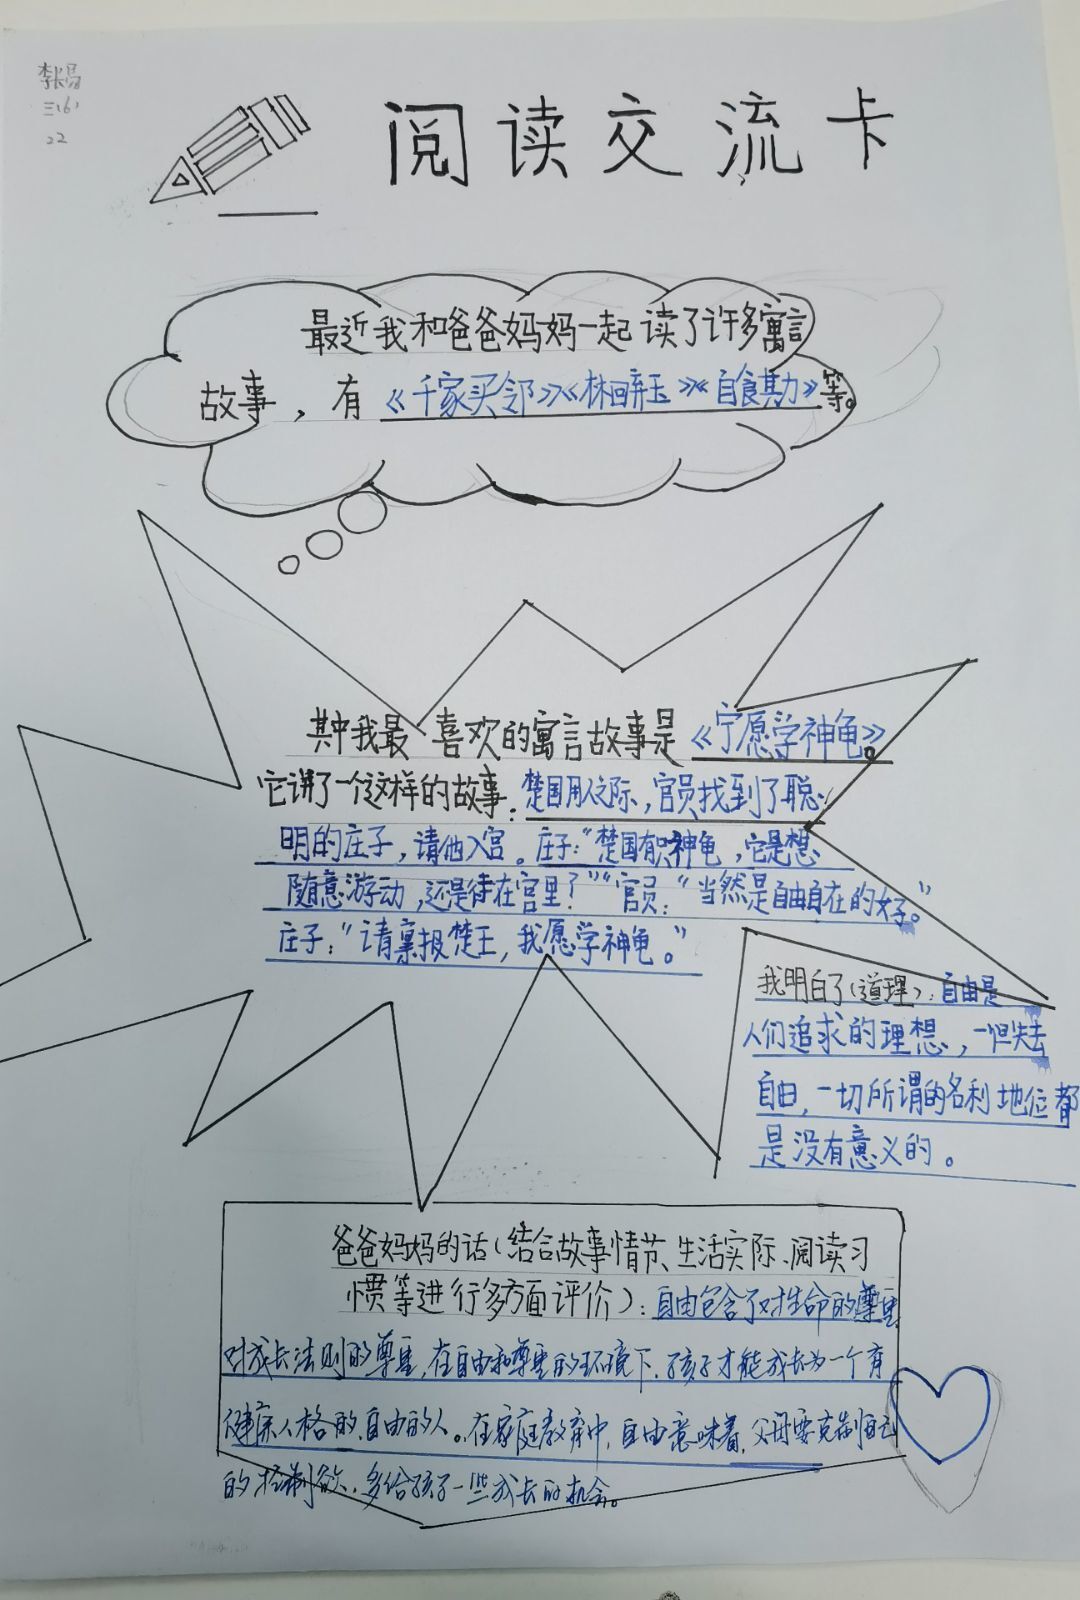 三(6)
22
阅读交流卡
最近我和爸爸妈妈一起读了许多寓言
故事，有《千家买邻》《林回弃玉》《自食其力》等。
其中我最喜欢的寓言故事是《宁愿学神龟》。
它讲了一个这样的故事：楚国用人之际，官员找到了聪
明的庄子，请他入宫。庄子：“楚国有只神龟，它是想
随意游动，还是待在宫里？”“官员：“当然是自由自在的好。”
庄子：“请禀报楚王，我愿学神龟。”
我明白了（道理）：自由是
人们追求的理想，一但失去
自由，一切所谓的名利地位都
是没有意义的。
爸爸妈妈的话（结合故事情节、生活实际、阅读习
惯等进行多方面评价）：自由包含了对生命的尊重
对成长法则的尊重，在自由和尊重的环境下，孩子才能成长为一个有
健康人格的，自由的人。在家庭教育中，自由意味着，父母要克制自己
的控制欲，多给孩子一些成长的机会。